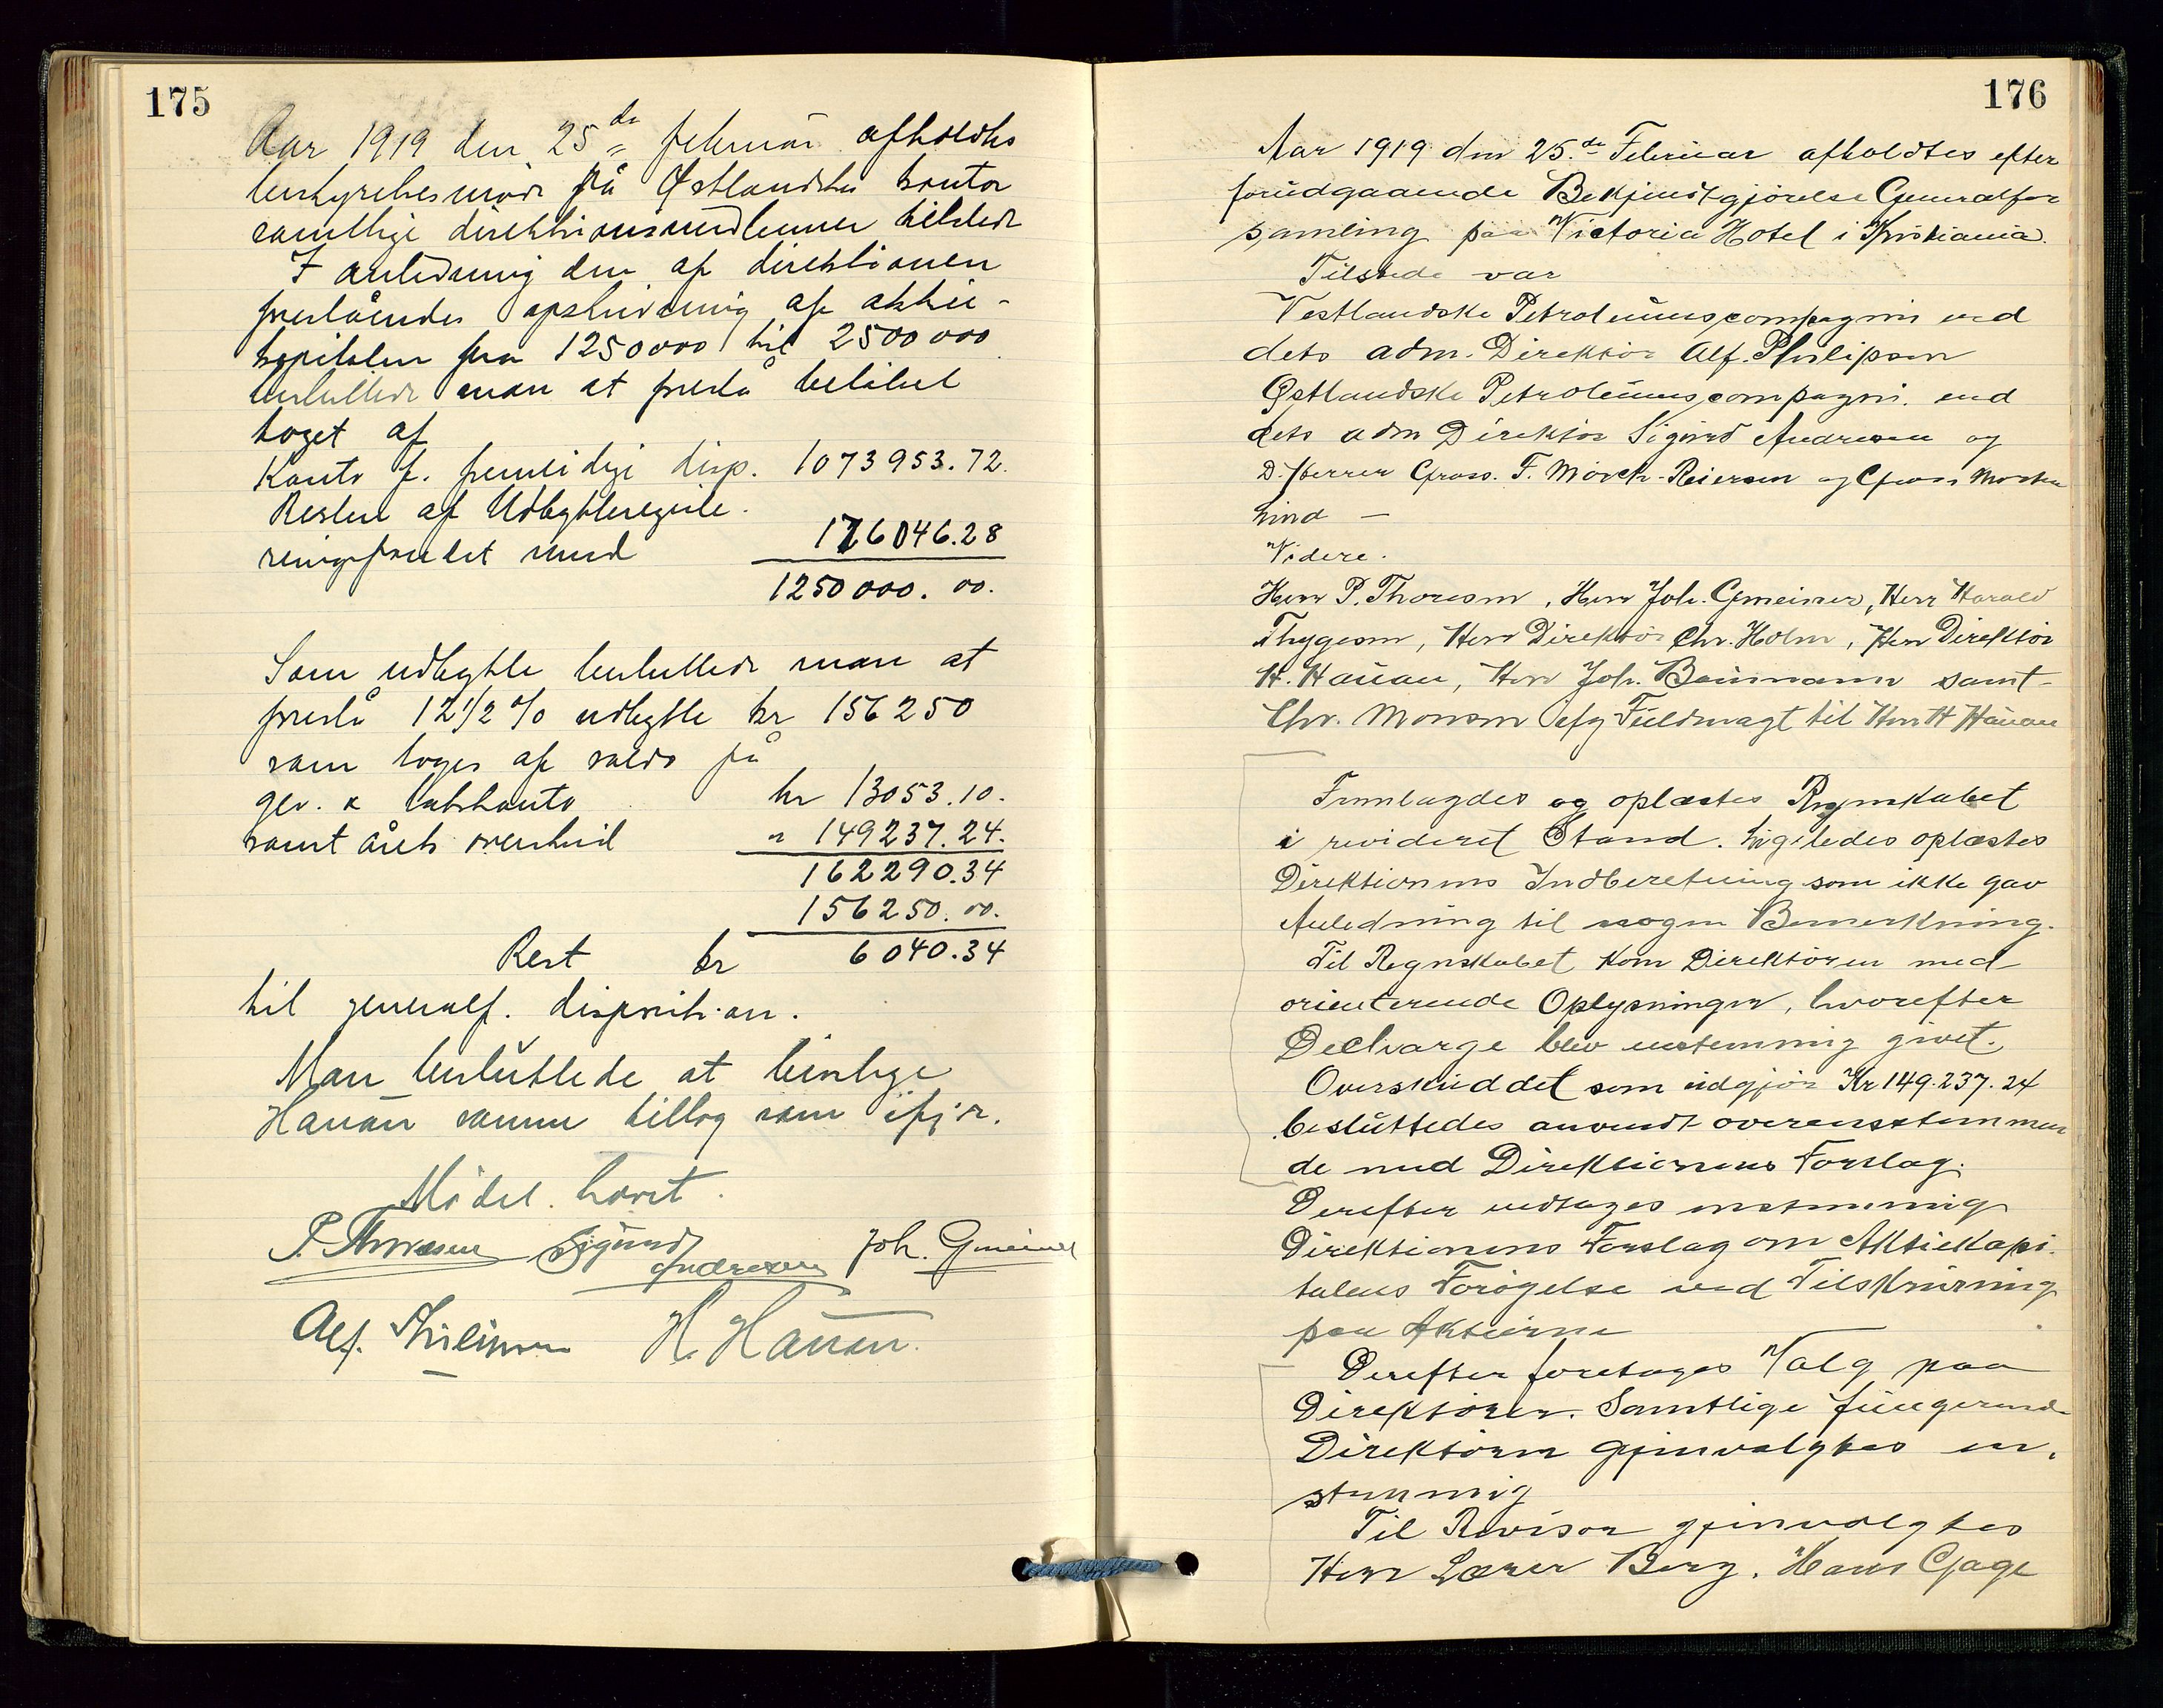 175
Aar 1919 den 25de februar afholdtes
bestyrelsesmøde på Østlandske kontor
samtlige direktionsmedlemmer tilstede
I anledning den af direktionen
foreslåendes opskrivning af aktie-
kapitalen fra 1250000 til 2500000
besluttede man at foreslå beløbet
toget af
Konto f. fremtidige disp. 1073953.72.
Resten af Udbyttereguler-
ingsfondet med 176046.28
1250000.00.
Som udbytte besluttede man at
foreslå 12 1/2 % udbytte kr 156250
som toges af saldo på
gev. & tabskonto kr 13053.10.
samt årets overskud " 149237.24.
162290.34
156250.00.
Rest kr 6040.34
til generalf. disposition.
Man besluttede at bevilge
Hauan samme tillæg som ifjor.
Mødet hævet.
P. Thoresen Sigurd Andresen Joh. Gmeiner
Alf. Philipson H. Hauan.
176
Aar 1919 den 25.de Februar afholdtes efter
forudgaaende Bekjendtgjørelse Generalfor
samling paa Victoria Hotel i Kristiania.
Tilstede var
Vestlandske Petroleumscompagni ved
dets adm. Direktör Alf. Philipson
Østlandske Petroleumscompagni ved
dets adm Direktör Sigurd Andresen og
D.Herrer Gross. F. Mörch-Reiersen og Gross Morten
Lind —
Videre.
Herr P. Thoresen, Herr Joh. Gmeiner, Herr Harald
Thygesen, Herr Direktör Chr. Holm, Herr Direktör
H. Hauan, Herr Joh. Baumann samt
Chr. Monsen efg Fuldmagt til Herr H Hauan
Fremlagdes og oplæstes Regnskabet
i revideret Stand. Ligeledes oplæstes
Direktionens Indberetning som ikke gav
Anledning til nogen Bemerkning.
Til Regnskabet kom Direktören med
orienterende Oplysninger, hvorefter
Decharge blev enstemmig givet.
Overskuddet som udgjör Kr 149.237.24
besluttedes anvendt overensstemmen
de med Direktionens Forslag.
Derefter vedtoges enstemmig
Direktionens Forslag om Aktiekapi-
talens Forögelse ved Tilskrivning
paa Aktierne
Derefter foretoges Valg paa
Direktörer. Samtlige fungerende
Direktörer gjenvalgtes en-
stemmig
Til Revisor gjenvalgtes
Herr Lærer Berg. Hans Gage